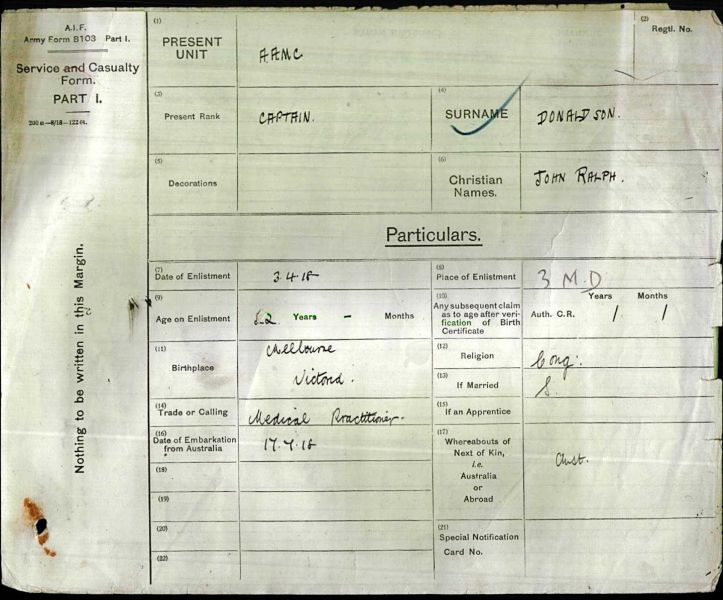 A.I.F.
Army Form B103 Part I.
Service and Casualty
Form.
PART I.
Nothing to be written in this Margin.
(1)
PRESENT
UNIT
A.A.M.C
(2)
Regtl. No.
(3)
Present Rank
CAPTAIN.
(4)
SURNAME
DONALDSON.
(5)
Decorations
(6)
Christian
Names.
JOHN RALPH.
Particulars.
(7)
Date of Enlistment
3.4.18
(8)
Place of Enlistment
3 M.D
(9)
Age on Enlistment
Years – Months
(10)
Any subsequent claim
as to age after veri-
fication of Birth
Certificate
Years Months
Auth. C.R. / /
(11)
Birthplace
Melbourne
Victoria.
(12)
Religion
Cong:
(13)
If Married
S.
(14)
Trade or Calling
Medical Practitioner.
(15)
If an Apprentice
(16)
Date of Embarkation
from Australia
(17)
Whereabouts of
Next of Kin,
i.e.
Australia
or
Abroad
Aust.
(18)
(19)
(20)
(21)
Special Notification
Card No.
(22)